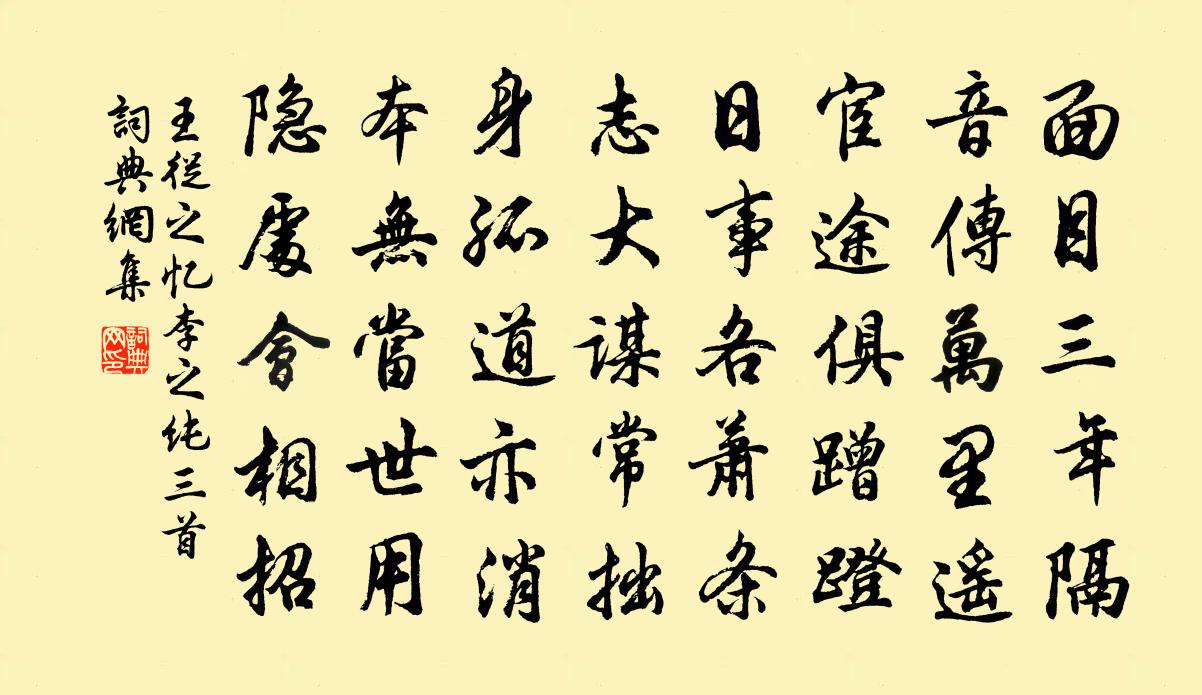 面目三年隔
音傳萬里遥
宦途俱蹭蹬
日事各蕭条
志大謀常拙
身孤道亦消
本無當世用
隐處會相招
王從之忆李之纯三首
詞典網集
詞典网印